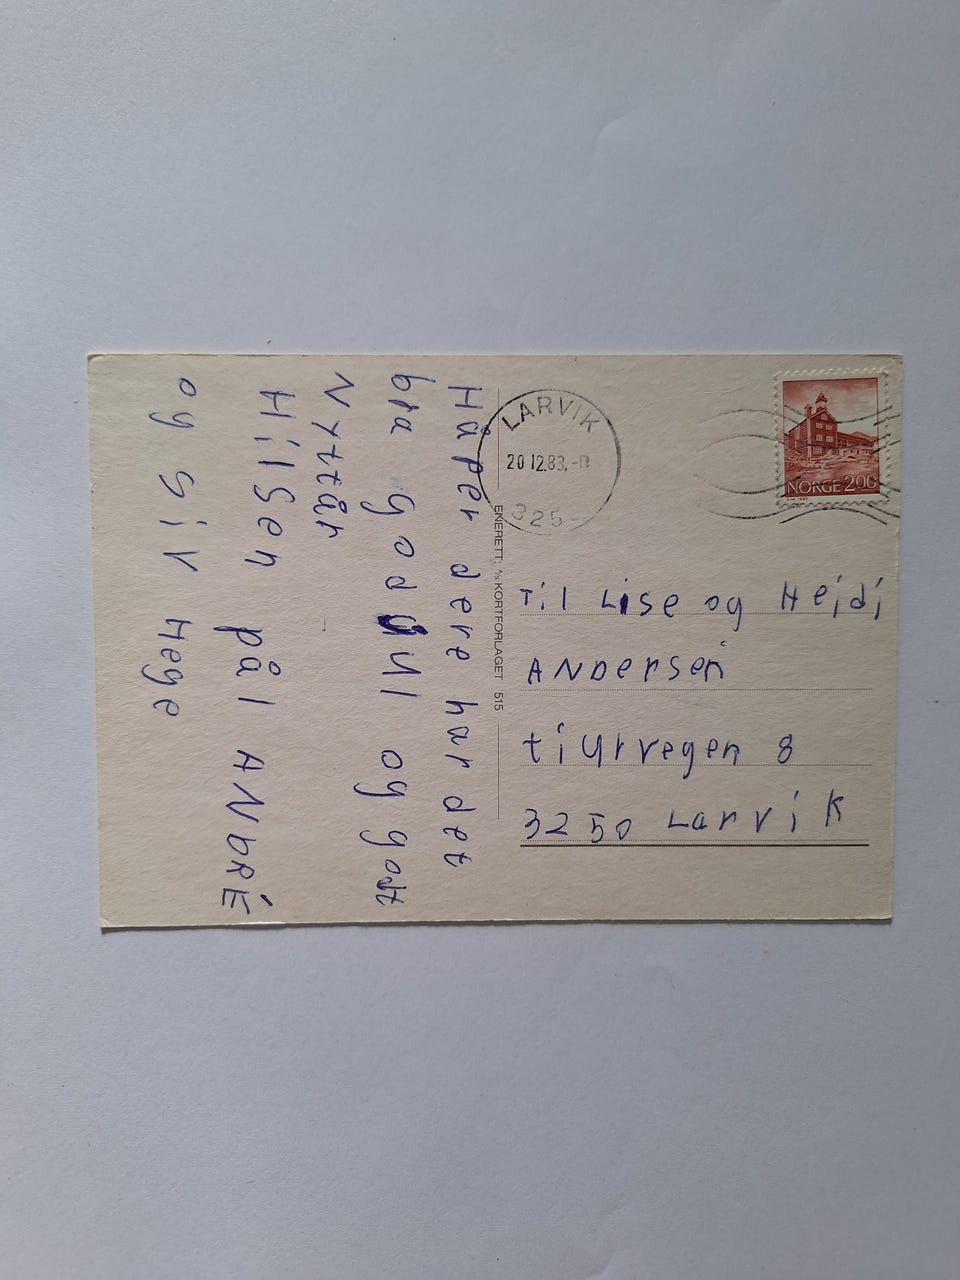 Håper dere har det
bra god Jul og godt
Nyttår
Hilsen pål ANDRÉ
og Siv Hege
ENERETT: A/S KORTFORLAGET 515
LARVIK
20 12.83.-
325
NORGE 200
Til Lise og Heidi
ANDersen
tiurvegen 8
3250 Larvik